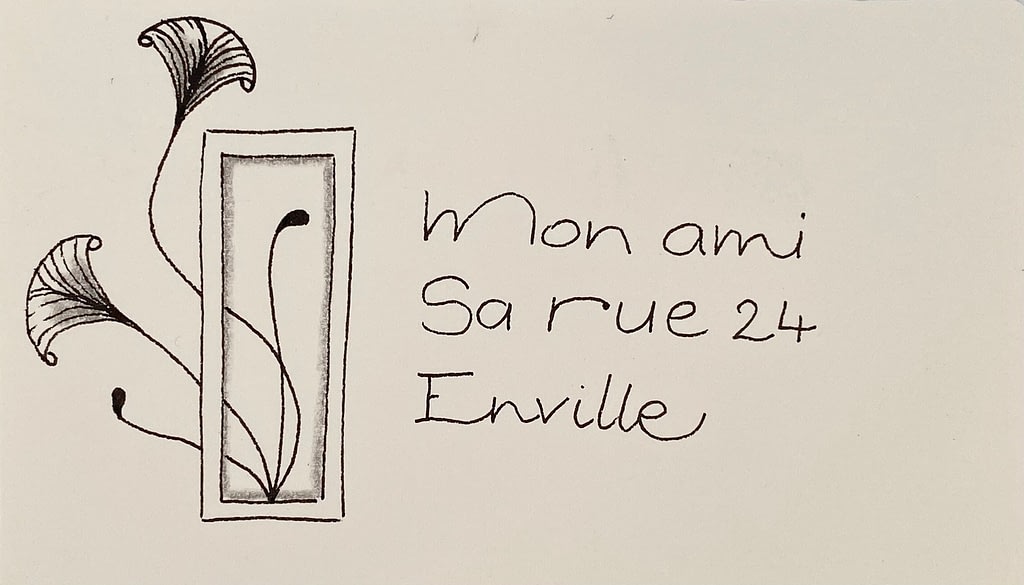 Mon ami
Sa rue 24
Enville